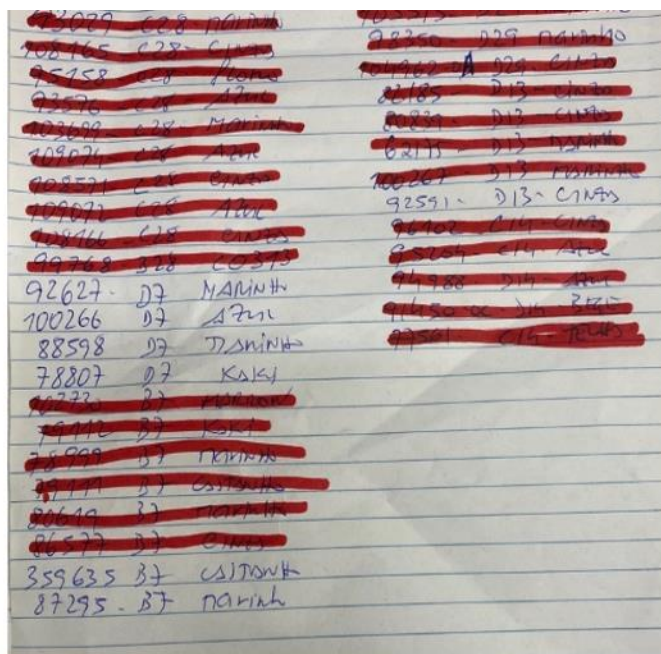 93029 C28 marinho
108165 C28 - Cinza
75158 C28
93576 - C28 - Azul
103699 - C28 - Marinho
109074 - C28 Azul
108571 - C28 Cinza
109072 C28 Azul
108166 - C28 Cinza
99768 B28 CO313
92627 - D7 MARINHO
100266 D7 AZUL
88598 D7 MARINHO
78807 D7 KAKI
102730 B7 MARROM
79112 B7 KAKI
78999 B7 marinho
79111 B7 CASTANHO
80619 B7 marinho
86577 B7 Cinza
359635 B7 CASTANH
87295 - B7 marinh
98350 - D29 marinho
104962 D29 - Cinza
82185 - D13 - cinza
80839 - D13 Cinza
62175 - D13 MARINH
100267 - D13 MARINHO
92591 - D13 - CINZA
96102 C14 - Cinza
95254 - C14 - Azul
94988 D14 - Azul
91450 - D14 BEGE
97561 C14 -